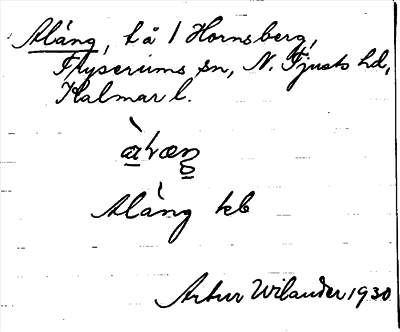 Aläng, t å / Hornsberg,
Flyseriums sn, N. Tjusts hd,
Kalmar l.
Aläng kb
Artur Wilander 1930